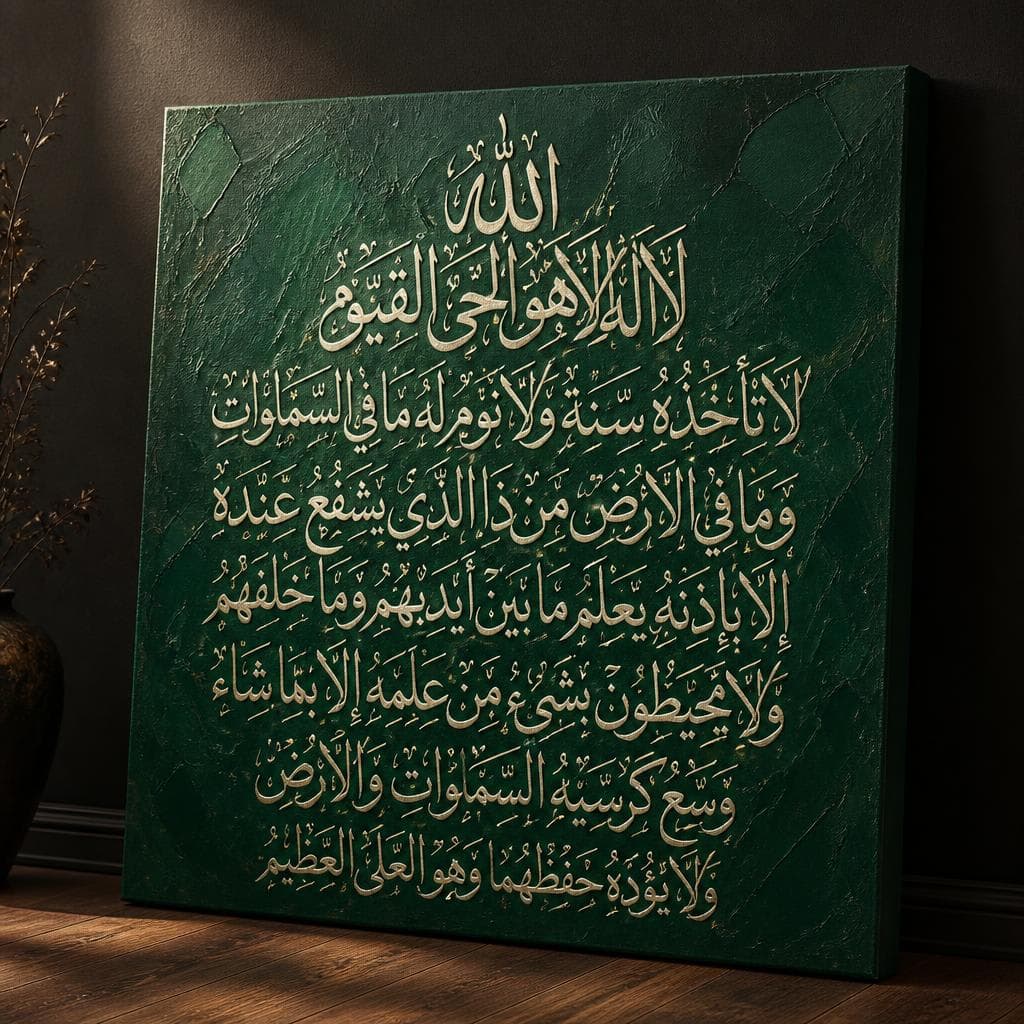 الله
لا اله إلا هو الحَيُّ القَيُّومُ
لَا تَأْخُذُهُ سِنَةٌ وَلَا نَوْمٌ لَهُ مَا فِي السَّمَاوَاتِ
وَمَا فِي الْأَرْضِ مَنْ ذَا الَّذِي يَشْفَعُ عِنْدَهُ
إِلَّا بِإِذْنِهِ يَعْلَمُ مَا بَيْنَ أَيْدِيهِمْ وَمَا خَلْفَهُمْ
وَلَا يُحِيطُونَ بِشَيْءٍ مِنْ عِلْمِهِ إِلَّا بِمَا شَاءَ
وَسِعَ كُرْسِيُّهُ السَّمَاوَاتِ وَالْأَرْضَ
وَلَا يَؤُدُهُ حِفْظُهُمَا وَهُوَ الْعَلِيُّ الْعَظِيمُ